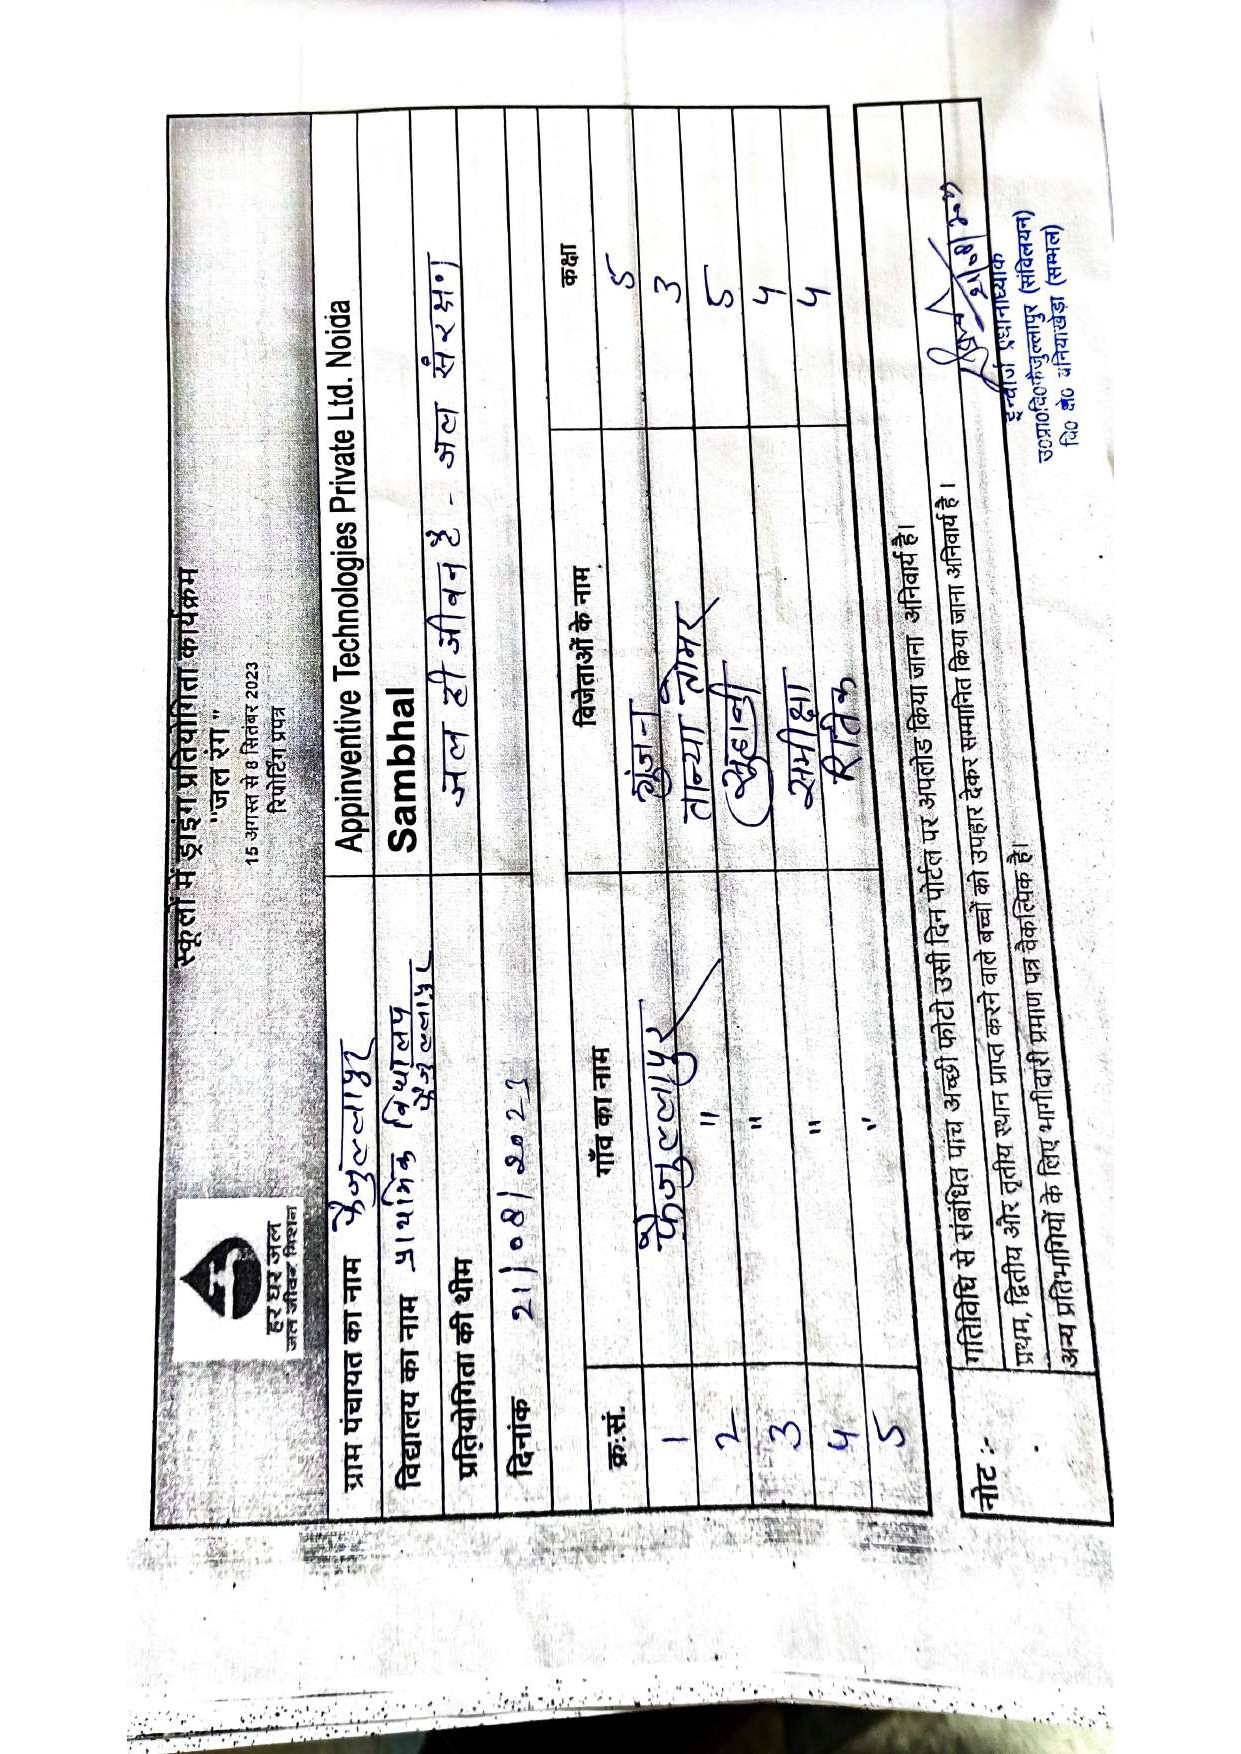 स्कूलों में ड्राइंग प्रतियोगिता कार्यक्रम
"जल रंग"
15 अगस्त से 8 सितंबर 2023
रिपोर्टिंग प्रपत्र
हर घर जल
जल जीवन मिशन
ग्राम पंचायत का नाम फैजुल्लापुर Appinventive Technologies Private Ltd. Noida
विद्यालय का नाम प्राथमिक विद्यालय फैजुल्लापुर Sambhal
प्रतियोगिता की थीम जल ही जीवन है - जल संरक्षण
दिनांक 21/08/2023
क्र:सं. गाँव का नाम विजेताओं के नाम कक्षा
1 फैजुल्लापुर गुंजन 5
2 " तान्या तोमर 3
3 " सुहानी 5
4 " समीक्षा 4
5 " रितिक 4
नोट :- गतिविधि से संबंधित पांच अच्छी फोटो उसी दिन पोर्टल पर अपलोड किया जाना अनिवार्य है।
प्रथम, द्वितीय और तृतीय स्थान प्राप्त करने वाले बच्चों को उपहार देकर सम्मानित किया जाना अनिवार्य है।
अन्य प्रतिभागियों के लिए भागीदारी प्रमाण पत्र वैकल्पिक है।
इन्चार्ज प्रधानाध्यापक
उ०प्रा०वि०फैजुल्लापुर (संविलयन)
वि० क्षे० बनियाखेड़ा (सम्भल)